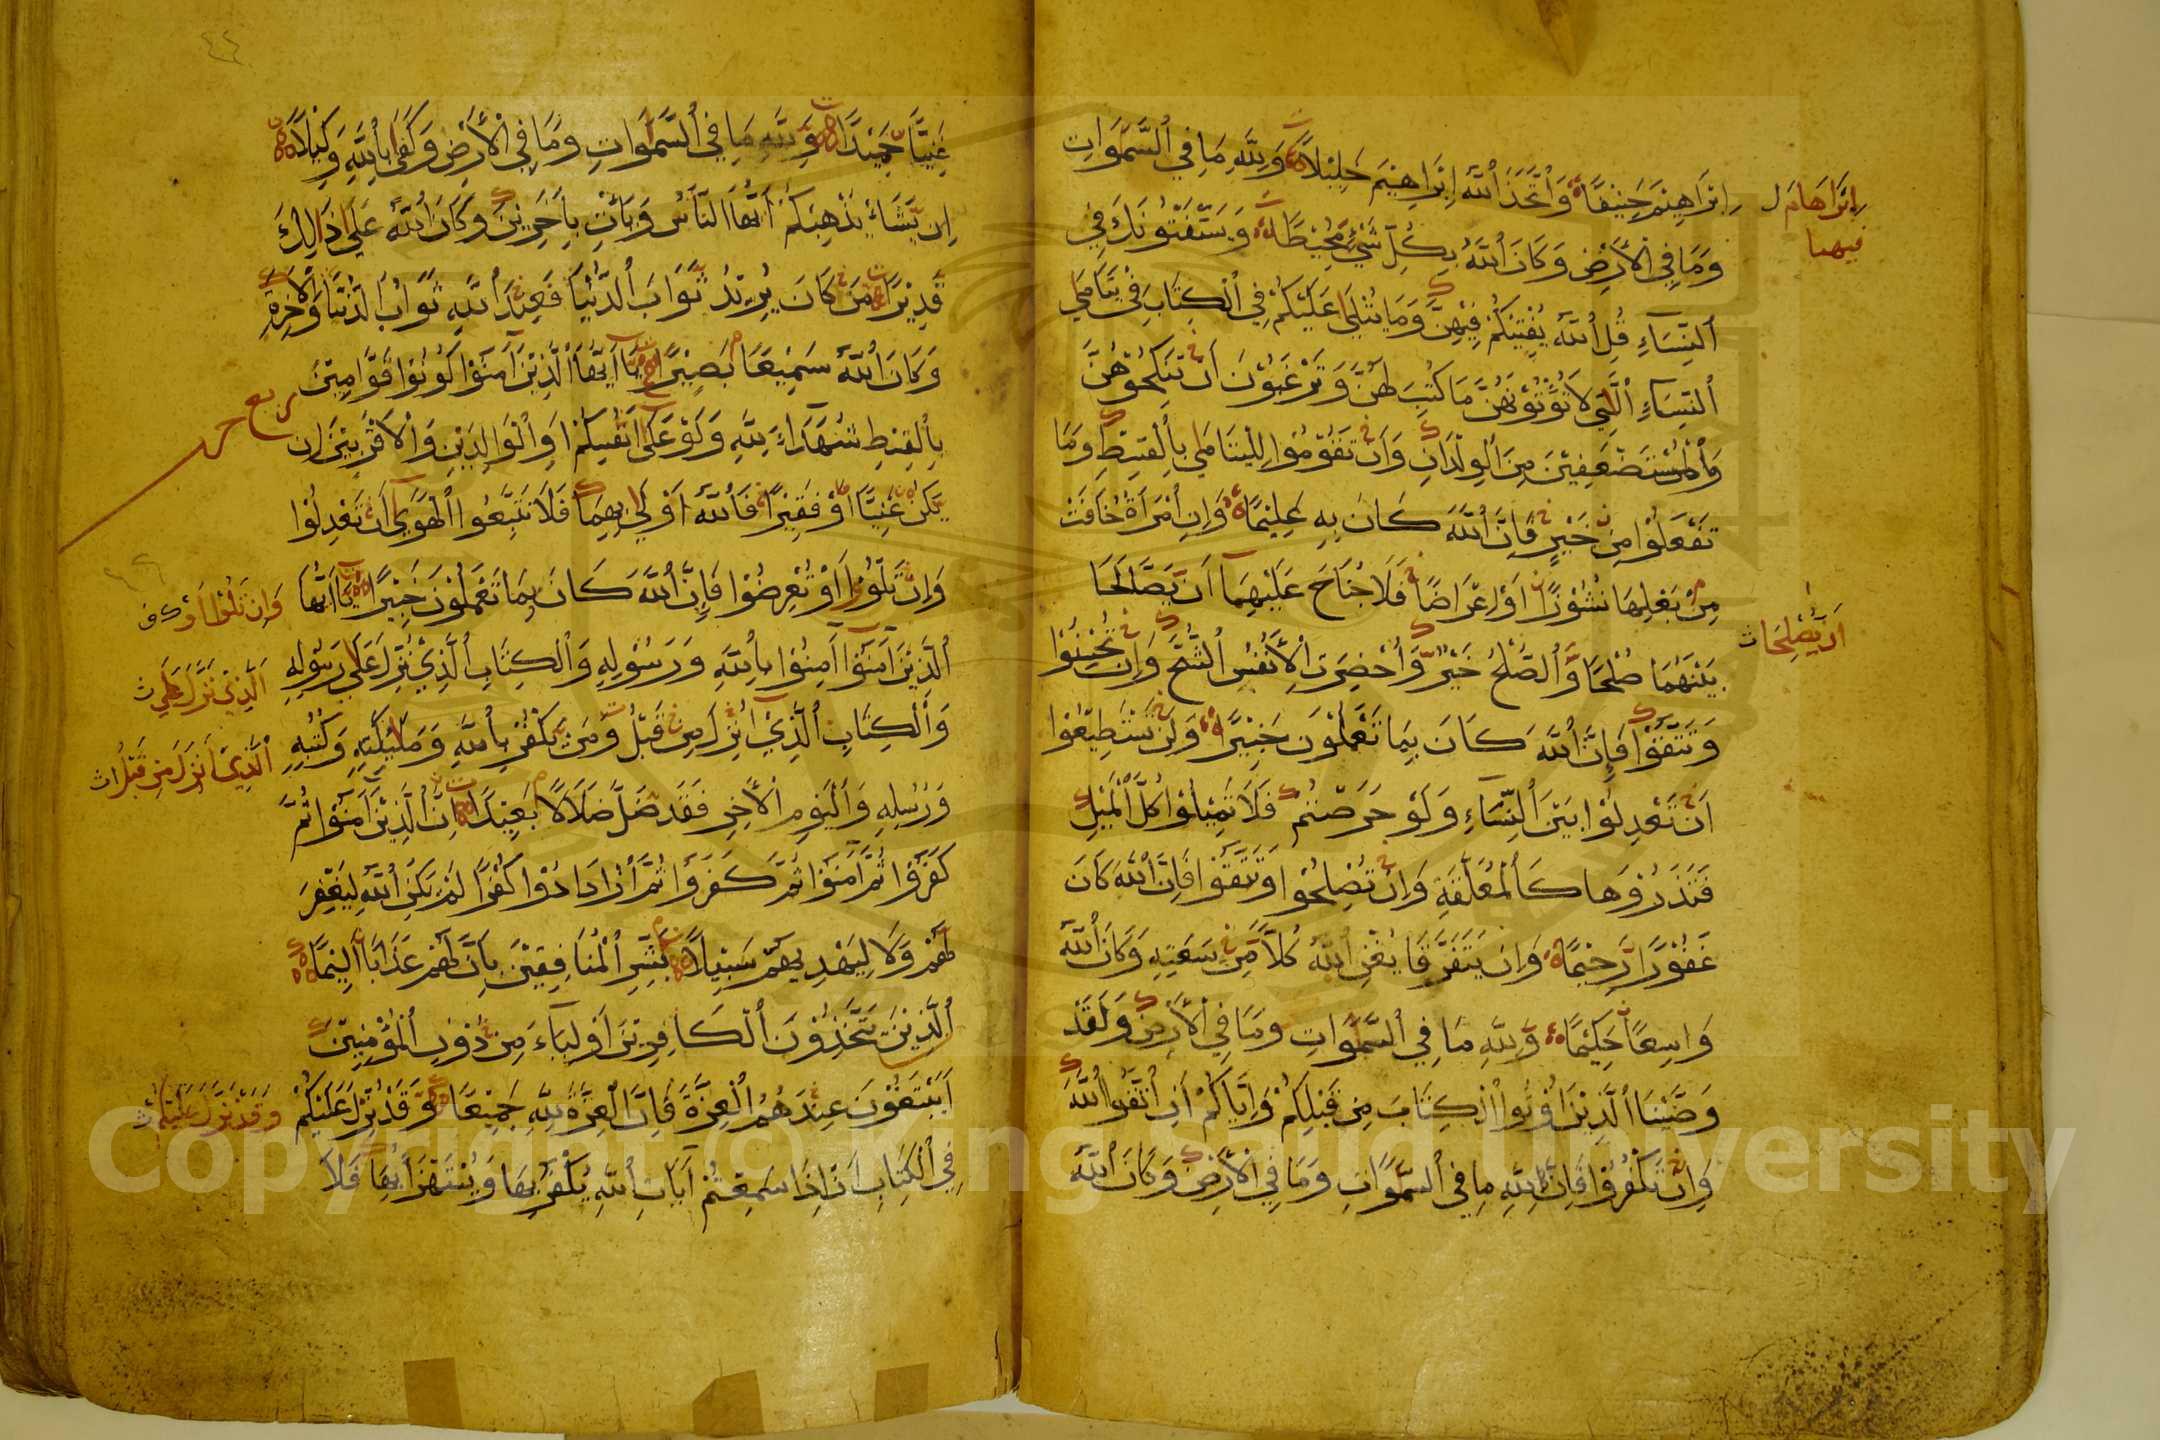 إِبْرَاهِيْمَ حَنِيْفًا وَاتَّخَذَ اللَّهُ إِبْرَاهِيْمَ خَلِيْلًا وَلِلَّهِ مَا فِي السَّمَوَاتِ
إبراهام ل
فيهما
وَمَا فِي الْأَرْضِ وَكَانَ اللَّهُ بِكُلِّ شَيْءٍ مُحِيْطًا وَيَسْتَفْتُونَكَ فِي
النِّسَاءِ قُلِ اللَّهُ يُفْتِيْكُمْ فِيْهِنَّ وَمَا يُتْلَى عَلَيْكُمْ فِي الْكِتَابِ فِي يَتَامَى
النِّسَاءِ الَّتِي لَا تُؤْتُوْنَهُنَّ مَا كُتِبَ لَهُنَّ وَتَرْغَبُوْنَ أَنْ تَنْكِحُوْهُنَّ
وَالْمُسْتَضْعَفِيْنَ مِنَ الْوِلْدَانِ وَأَنْ تَقُوْمُوْا لِلْيَتَامَى بِالْقِسْطِ وَمَا
تَفْعَلُوْا مِنْ خَيْرٍ فَإِنَّ اللَّهَ كَانَ بِهِ عَلِيْمًا وَإِنِ امْرَأَةٌ خَافَتْ
مِنْ بَعْلِهَا نُشُوْزًا أَوْ إِعْرَاضًا فَلَا جُنَاحَ عَلَيْهِمَا أَنْ يَصَّالَحَا
أن يُصْلِحَا ث
بَيْنَهُمَا صُلْحًا وَالصُّلْحُ خَيْرٌ وَأُحْضِرَتِ الْأَنْفُسُ الشُّحَّ وَإِنْ تُحْسِنُوْا
وَتَتَّقُوْا فَإِنَّ اللَّهَ كَانَ بِمَا تَعْمَلُوْنَ خَبِيْرًا وَلَنْ تَسْتَطِيْعُوْا
أَنْ تَعْدِلُوْا بَيْنَ النِّسَاءِ وَلَوْ حَرَصْتُمْ فَلَا تَمِيْلُوْا كُلَّ الْمَيْلِ
فَتَذَرُوْهَا كَالْمُعَلَّقَةِ وَإِنْ تُصْلِحُوْا وَتَتَّقُوْا فَإِنَّ اللَّهَ كَانَ
غَفُوْرًا رَحِيْمًا وَإِنْ يَتَفَرَّقَا يُغْنِ اللَّهُ كُلًّا مِنْ سَعَتِهِ وَكَانَ اللَّهُ
وَاسِعًا حَكِيْمًا وَلِلَّهِ مَا فِي السَّمَوَاتِ وَمَا فِي الْأَرْضِ وَلَقَدْ
وَصَّيْنَا الَّذِيْنَ أُوْتُوا الْكِتَابَ مِنْ قَبْلِكُمْ وَإِيَّاكُمْ أَنِ اتَّقُوا اللَّهَ
وَإِنْ تَكْفُرُوْا فَإِنَّ لِلَّهِ مَا فِي السَّمَوَاتِ وَمَا فِي الْأَرْضِ وَكَانَ اللَّهُ
٤٤
غَنِيًّا حَمِيْدًا وَلِلَّهِ مَا فِي السَّمَوَاتِ وَمَا فِي الْأَرْضِ وَكَفَى بِاللَّهِ وَكِيْلًا
إِنْ يَشَأْ يُذْهِبْكُمْ أَيُّهَا النَّاسُ وَيَأْتِ بِآخَرِيْنَ وَكَانَ اللَّهُ عَلَى ذَالِكَ
قَدِيْرًا مَنْ كَانَ يُرِيْدُ ثَوَابَ الدُّنْيَا فَعِنْدَ اللَّهِ ثَوَابُ الدُّنْيَا وَالْآخِرَةِ
وَكَانَ اللَّهُ سَمِيْعًا بَصِيْرًا يَا أَيُّهَا الَّذِيْنَ آمَنُوْا كُوْنُوْا قَوَّامِيْنَ
ربع حزب
بِالْقِسْطِ شُهَدَاءَ لِلَّهِ وَلَوْ عَلَى أَنْفُسِكُمْ أَوِ الْوَالِدَيْنِ وَالْأَقْرَبِيْنَ إِنْ
يَكُنْ غَنِيًّا أَوْ فَقِيْرًا فَاللَّهُ أَوْلَى بِهِمَا فَلَا تَتَّبِعُوا الْهَوَى أَنْ تَعْدِلُوْا
وَإِنْ تَلْوُوْا أَوْ تُعْرِضُوْا فَإِنَّ اللَّهَ كَانَ بِمَا تَعْمَلُوْنَ خَبِيْرًا يَا أَيُّهَا
وَإِنْ تَلُوْا أَوْ ك ف
الَّذِيْنَ آمَنُوْا آمِنُوْا بِاللَّهِ وَرَسُوْلِهِ وَالْكِتَابِ الَّذِيْ نُزِّلَ عَلَى رَسُوْلِهِ
الَّذِيْ نَزَّلَ عَلَى ث
وَالْكِتَابِ الَّذِيْ أُنْزِلَ مِنْ قَبْلُ وَمَنْ يَكْفُرْ بِاللَّهِ وَمَلَئِكَتِهِ وَكُتُبِهِ
الَّذِيْ أَنْزَلَ مِنْ قَبْلُ اث
وَرُسُلِهِ وَالْيَوْمِ الْآخِرِ فَقَدْ ضَلَّ ضَلَالًا بَعِيْدًا إِنَّ الَّذِيْنَ آمَنُوْا ثُمَّ
كَفَرُوْا ثُمَّ آمَنُوْا ثُمَّ كَفَرُوْا ثُمَّ ازْدَادُوْا كُفْرًا لَمْ يَكُنِ اللَّهُ لِيَغْفِرَ
لَهُمْ وَلَا لِيَهْدِيَهُمْ سَبِيْلًا بَشِّرِ الْمُنَافِقِيْنَ بِأَنَّ لَهُمْ عَذَابًا أَلِيْمًا
الَّذِيْنَ يَتَّخِذُوْنَ الْكَافِرِيْنَ أَوْلِيَاءَ مِنْ دُوْنِ الْمُؤْمِنِيْنَ
أَيَبْتَغُوْنَ عِنْدَهُمُ الْعِزَّةَ فَإِنَّ الْعِزَّةَ لِلَّهِ جَمِيْعًا وَقَدْ نُزِّلَ عَلَيْكُمْ
وَقَدْ نَزَّلَ عَلَيْكُمْ ث
فِي الْكِتَابِ أَنْ إِذَا سَمِعْتُمْ آيَاتِ اللَّهِ يُكْفَرُ بِهَا وَيُسْتَهْزَأُ بِهَا فَلَا
Copyright © King Saud University